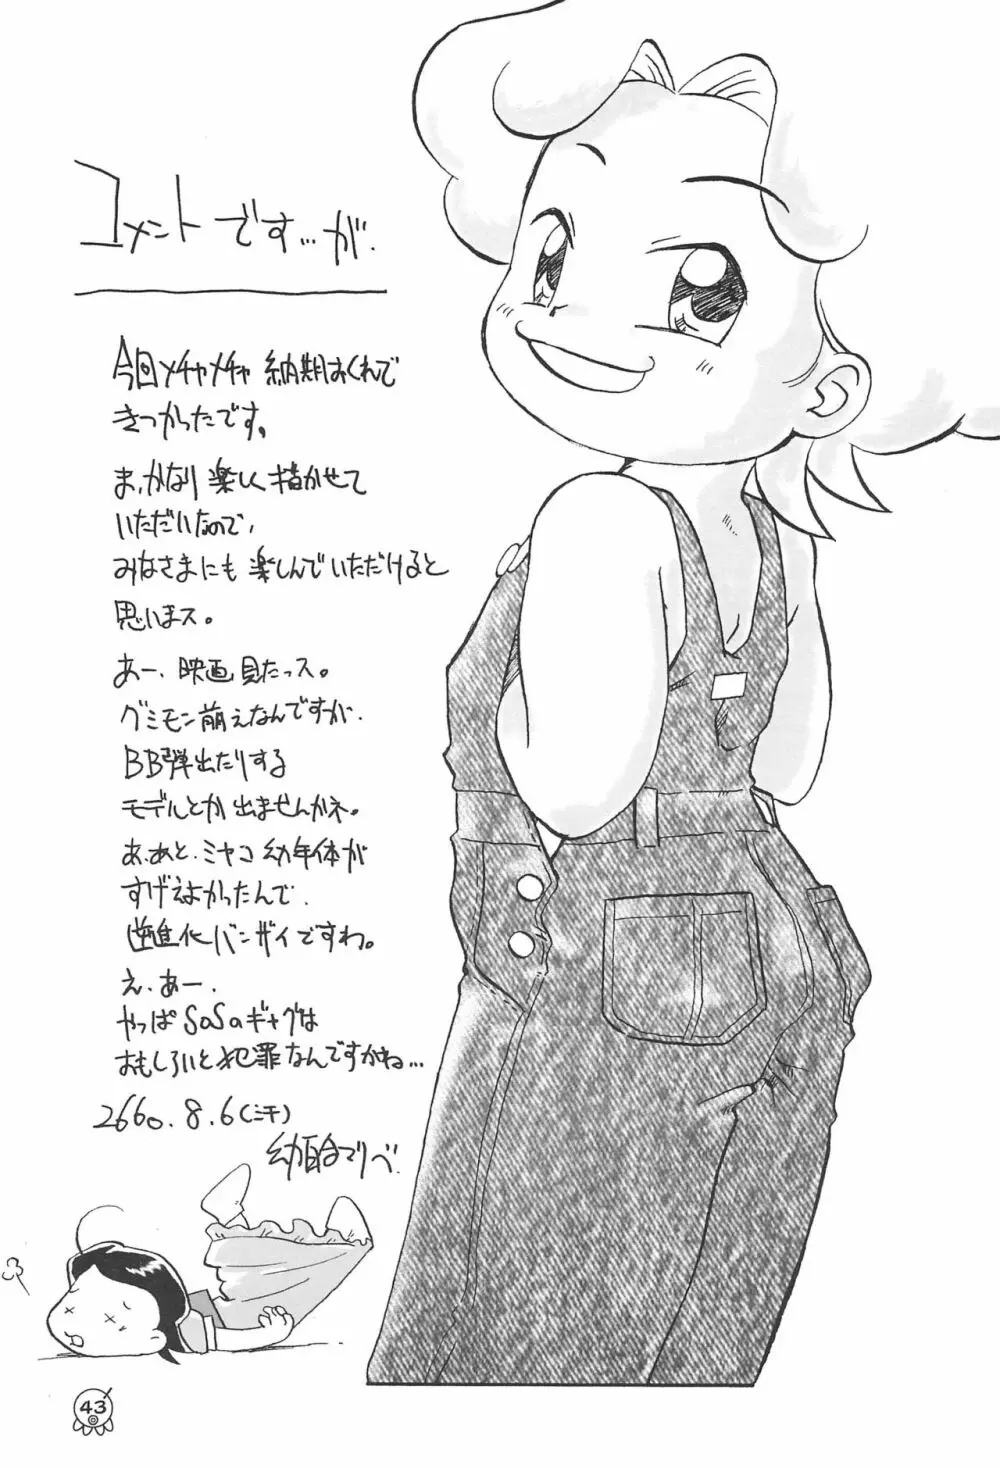 コメントです…が.
今回メチャメチャ納期おくれで
きつかったです。
ま、かなり楽しく描かせて
いただいたので、
みなさまにも楽しんでいただけると
思いまス。
あー、映画見たっス。
グミモン萌えなんですが、
BB弾出たりする
モデルとか出ませんかネ。
あ、あと、ミヤコ幼年体が
すげえよかったんで、
逆進化バンザイですわ。
え、あー、
やっぱSaSaギャグは
おもしろいと犯罪なんですかね…
2660.8.6(汗)
43